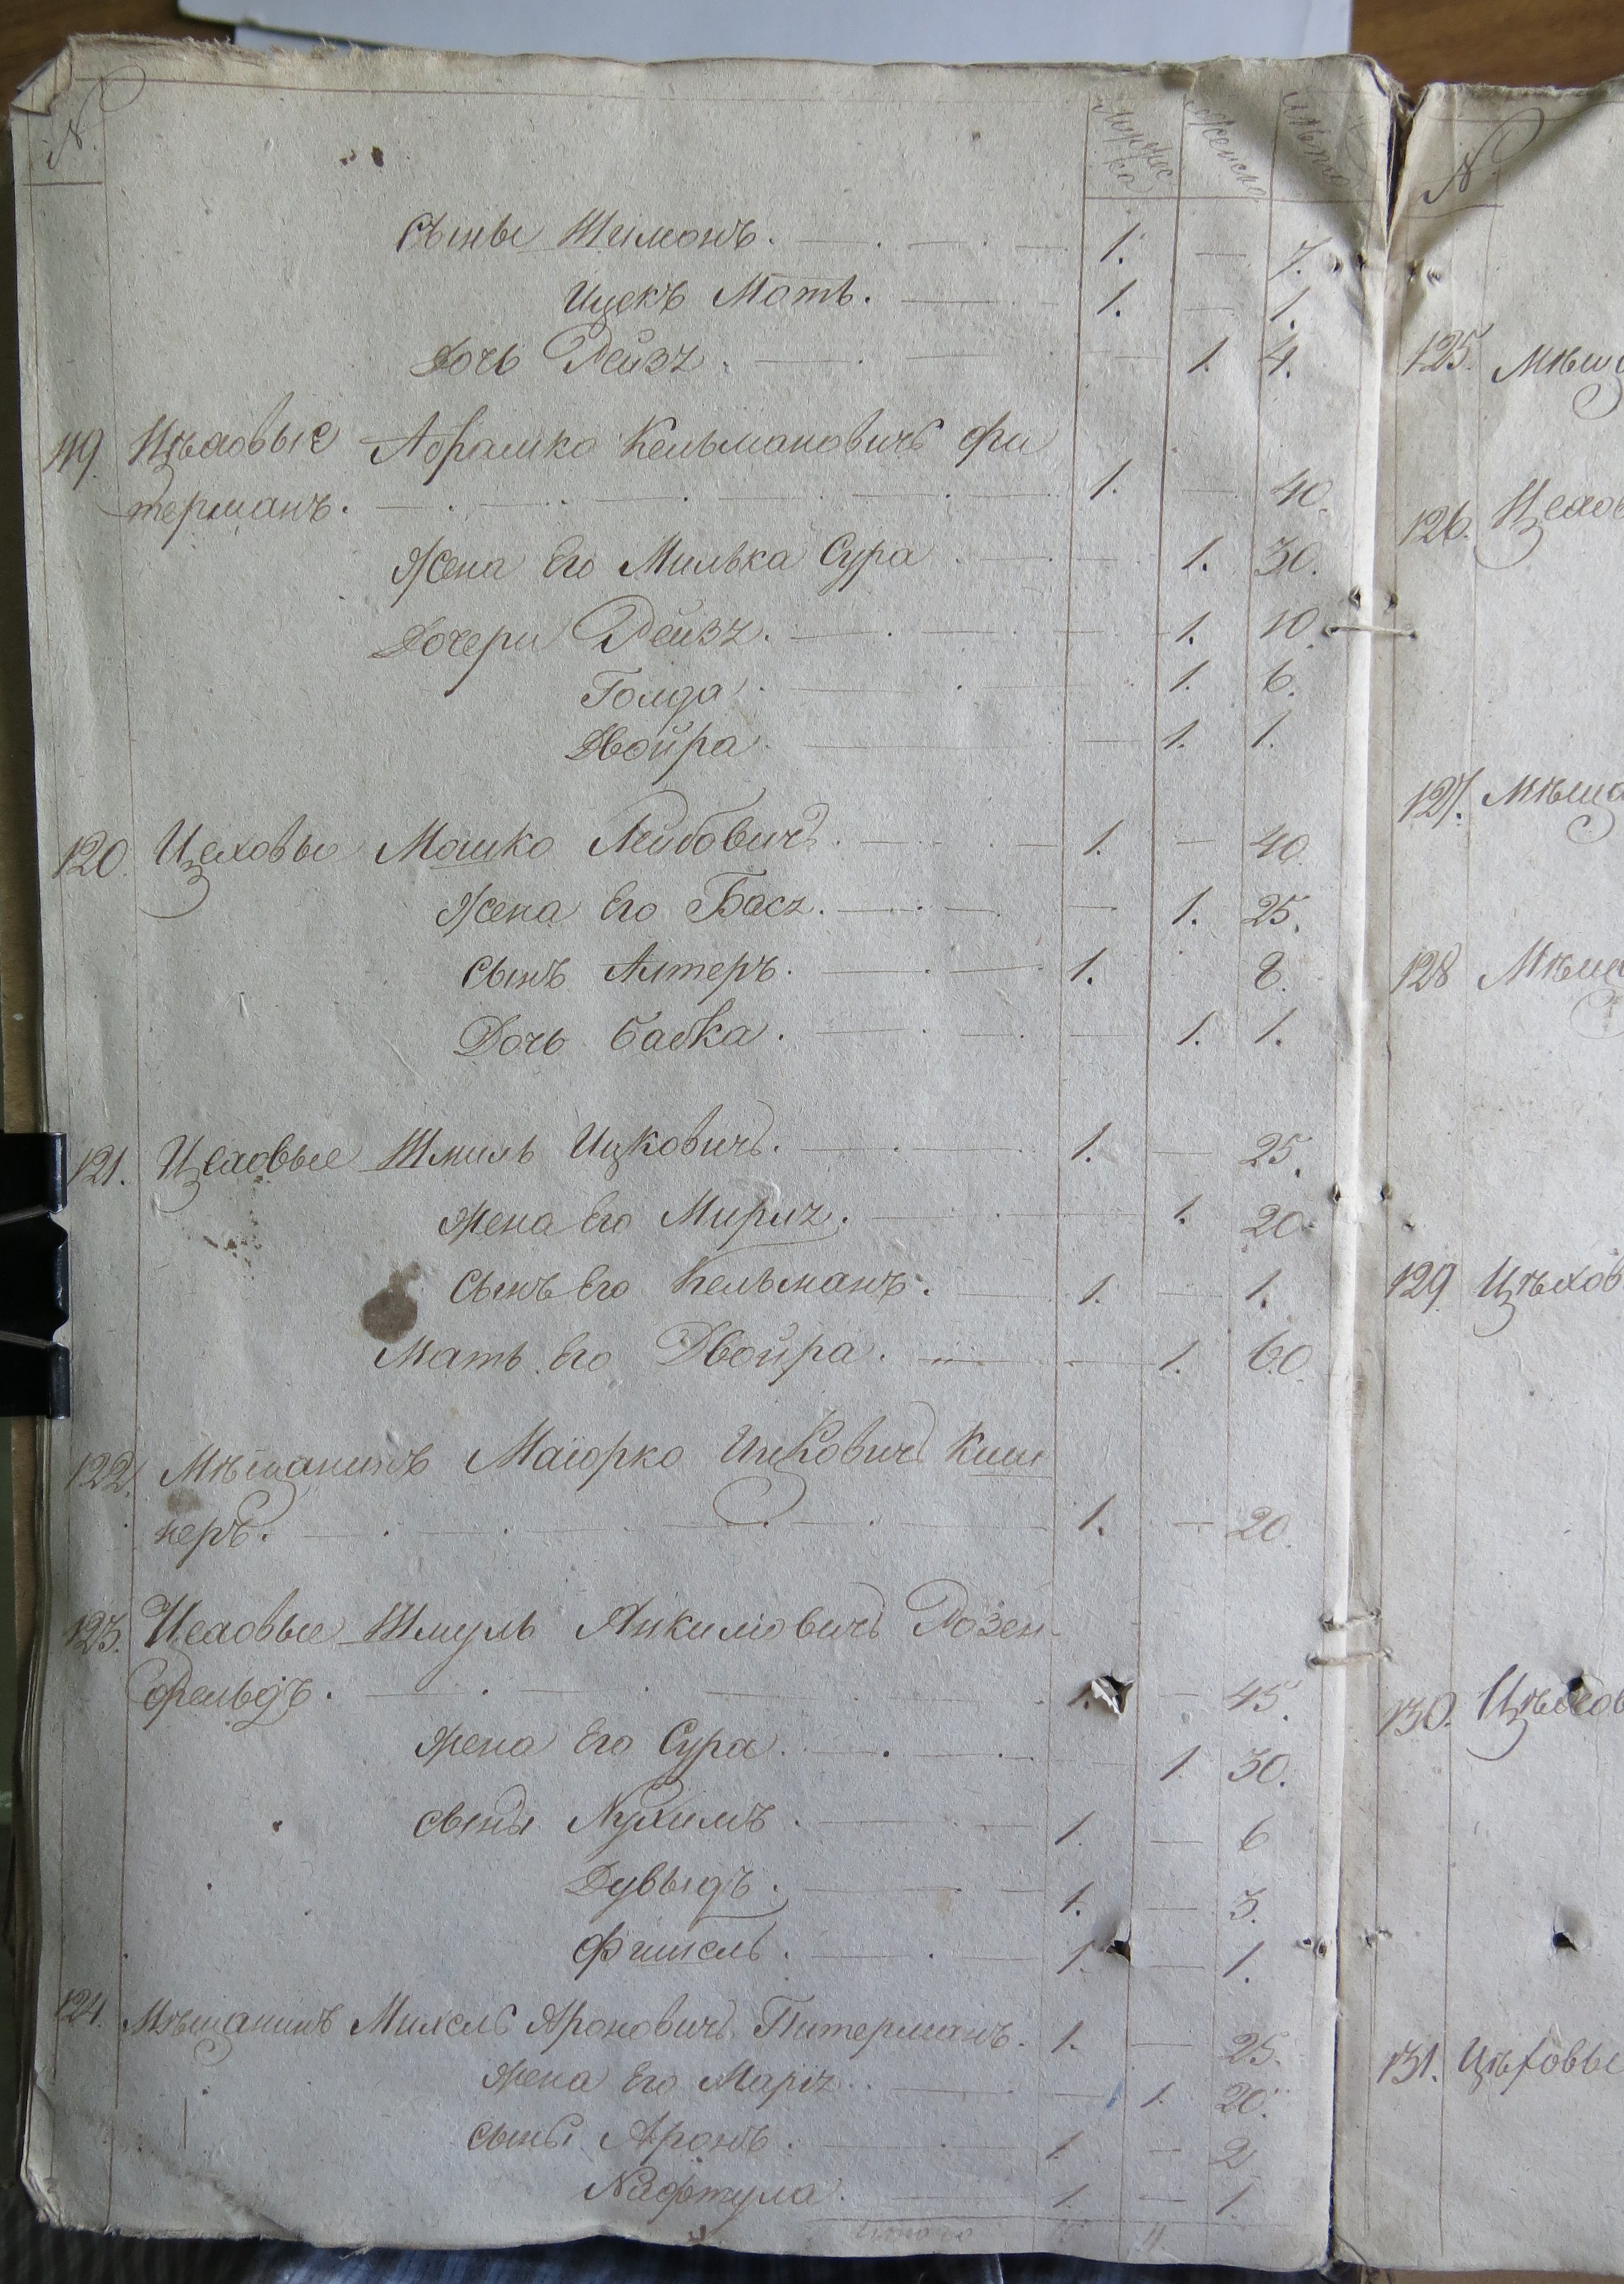 № Мужес Женска Лѣта
ка
Сыны Шимонъ. 1. — 7.
Ицекъ Моть. 1. — 1.
Дочь Рейзя. — 1. 4.
119. Цѣховые Абрамко Кельмановичъ Фи
терманъ. 1. — 40.
Жена Его Милька Сура — 1. 30.
Дочери Рейзя. — 1. 10.
Голда. 1. 6.
Двойра. — 1. 1.
120. Цеховые Мошко Лейбовичъ. 1. — 40.
Жена Его Бася. — 1. 25.
Сынъ Алтеръ. 1. 8.
Дочь Бабка. — 1. 1.
121. Цеховые Шмиль Ицковичъ. 1. — 25.
Жена Его Мирія. 1. 20.
Сынъ Его Кельманъ. 1. — 1.
Мать Его Двойра. — 1. 60.
122. Мѣщанинъ Маіорко Ицковичъ Киш
неръ. 1. — 20.
123. Цеховые Шмуль Янкиліовичъ Розен-
фельдъ. 1. — 45.
Жена Его Сура. 1. 30.
сыны Нухимъ. 1. — 6
Дувыдъ. 1. — 3.
Фишель. 1. — 1.
124. Мѣщанинъ Михель Ароновичъ Питерманъ. 1. — 25.
Жена Его Марія. — 1. 20.
сыны Аронъ. 1. — 2
Нафтула. 1. — 1.
итого 11.
№
125. Мѣщ
126. Цехов
127. Мѣща
128 Мѣща
129 Цѣхов
130. Цѣхов
131. Цѣховые